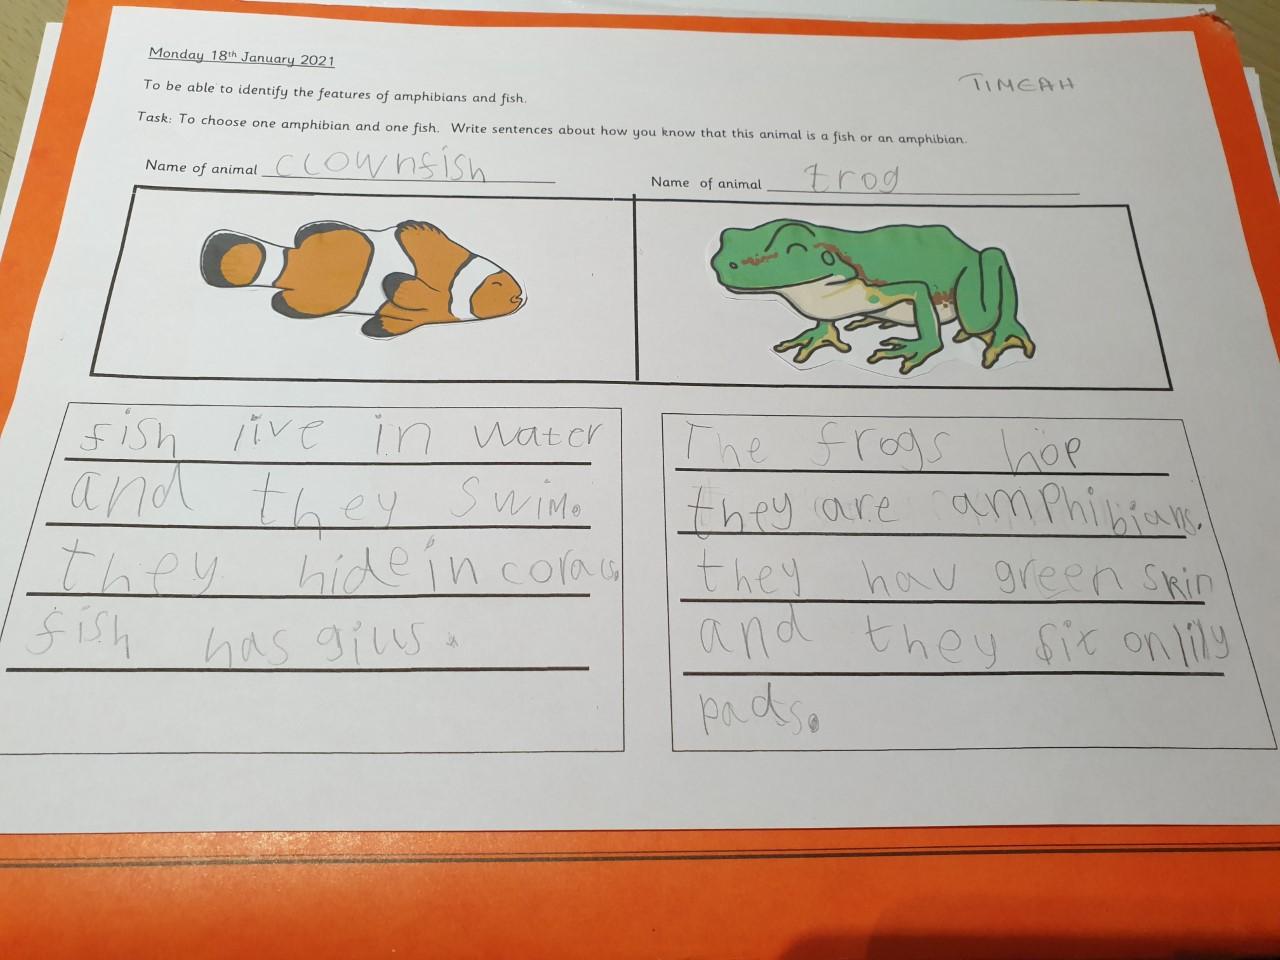 Monday 18th January 2021
TIMEAH
To be able to identify the features of amphibians and fish.
Task: To choose one amphibian and one fish. Write sentences about how you know that this animal is a fish or an amphibian.
Name of animal clownfish
Name of animal frog
fish live in water
and they swim.
they hide in corals.
fish has gills.
The frogs hop
they are amphibians.
they hav green skin
and they sit on lily
pads.